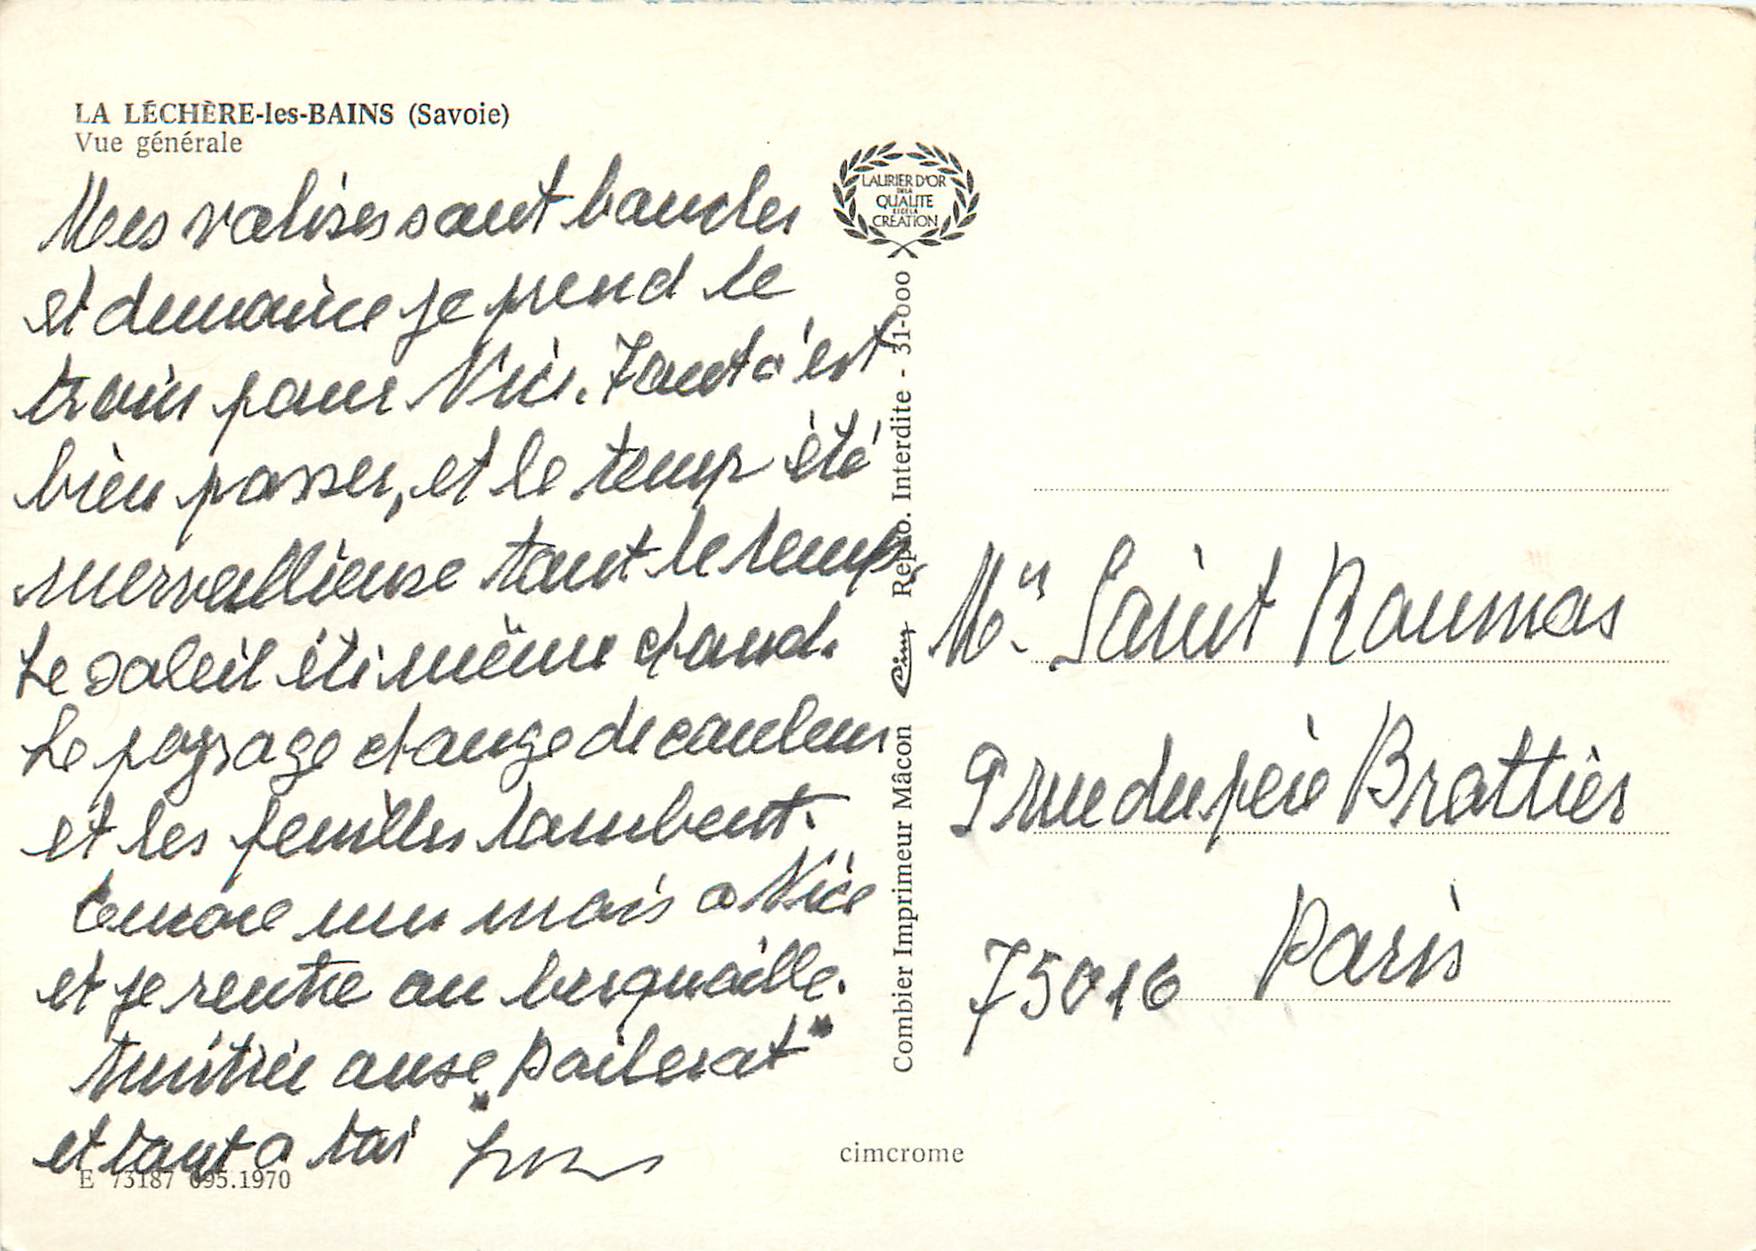 LA LÉCHÈRE-les-BAINS (Savoie)
Vue générale
Mes valises sont boucles
et demaine je prend le
train pour Nice. Tout c'est
bien passer, et le temp été
mervallieuse tout le temp,
Le soleil été même chaud.
Le paysage change de couleur
et les feuilles tombent.
Encore un mois a Nice
et je rentre au berquaille.
Amitiée ause "Poilerat"
et tout a toi
E 73187 695.1970
LAURIER D'OR
DE LA
QUALITE
ET DE LA
CREATION
Combier Imprimeur Mâcon Cim Repro. Interdite - 31-000
cimcrome
Mr. Saint Roumas
9 rue du père Brottier
75016 Paris